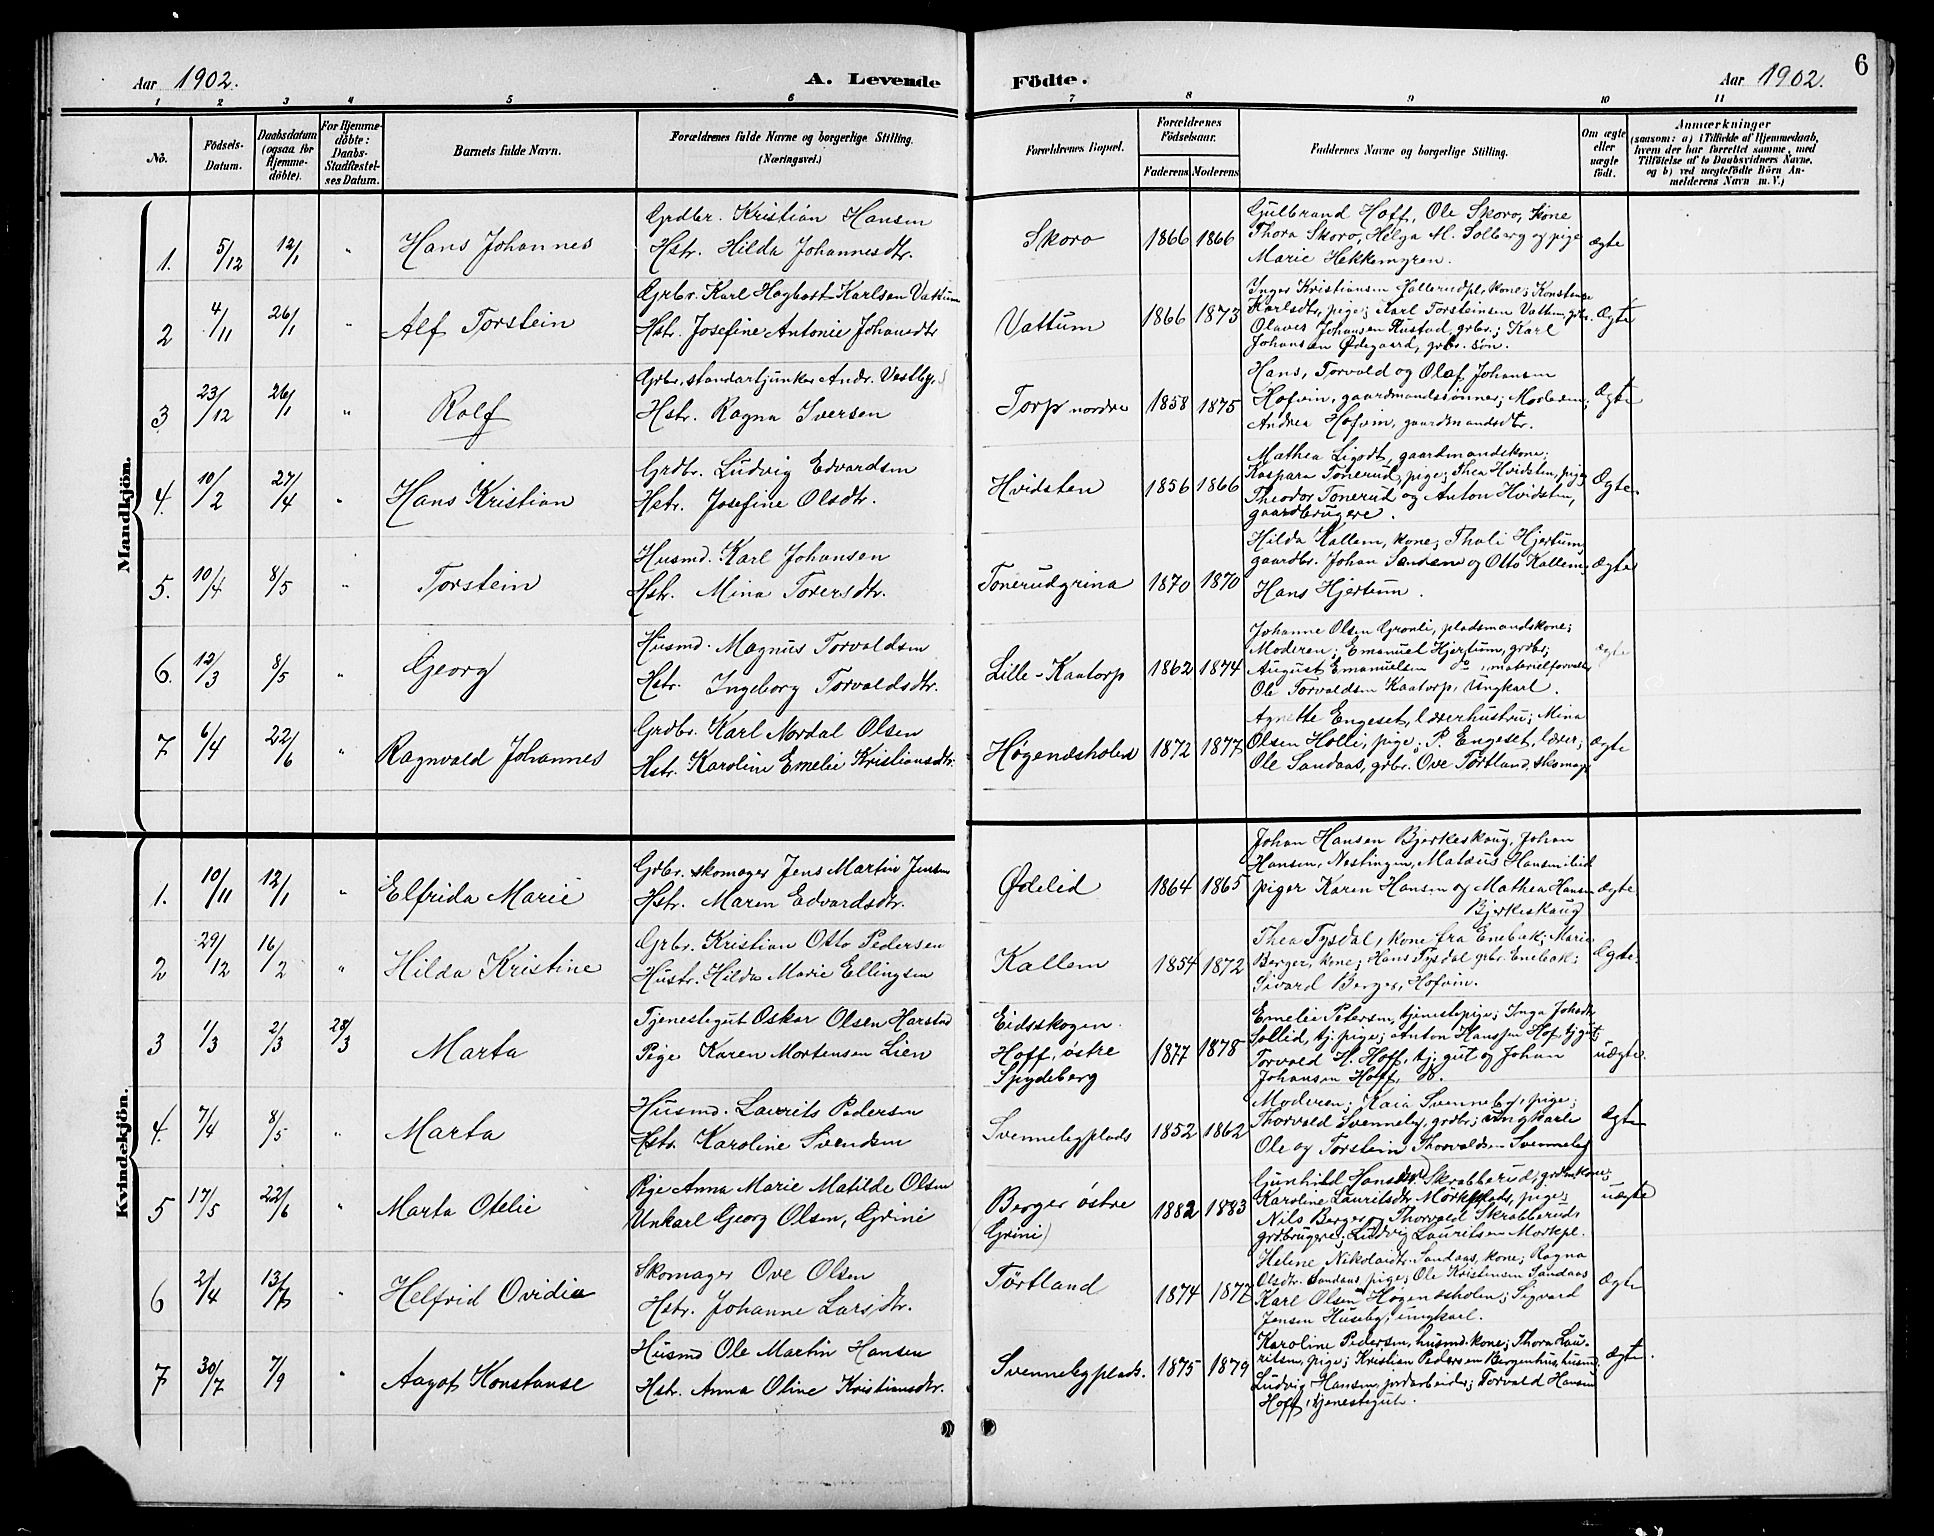 Aar 1902.
A. Levende
Födte.
Aar 1902.
6
1 2 3 4 5 6 7 8 9 10 11
No.
Födsels-Datum.
Daabsdatum (ogsaa for Hjemme-döbte).
For Hjemme-döbte: Daabs-Stadfæstel-ses Datum.
Barnets fulde Navn.
Forældrenes fulde Navne og borgerlige Stilling.
(Næringsvei.)
Forældrenes Bopæl.
Forældrenes Födselsaar.
Faderens Moderens
Faddernes Navne og borgerlige Stilling.
Om ægte eller uægte födt.
Anmærkninger
(saasom: a) i Tilfælde af Hjemmedaab,
hvem der har forrettet samme, med
Tilföielse af to Daabsvidners Navne.
og b) ved uægtefödte Börn An-
melderens Navn m. V.)
Mandkjön.
1. 5/12 12/1 " Hans Johannes
Grdbr. Kristian Hansen
Hstr. Hilda Johannesdtr.
Skoro 1866 1866
Gulbrand Hoff, Ole Skoro, Kone
Thora Skoro, Helga M. Solberg og pige
Marie Hekkemyren.
ægte
2 4/11 26/1 " Alf Torstein
Grbr. Karl Hagbart Karlsen Vattum
Hstr. Josefine Antonie Johansdtr
Vattum 1866 1873
Inger Kristiansen Hallerudpl., kone; Konstanse
Karlsdtr, pige; Karl Torsteinsen Vattum, grbr.
Olaves Johansen Rustad, grbr.; Karl
Johansen Ødegaard, grbr. søn.
Ægte
3 23/12 26/1 " Rolf
Grbr., standartjunker Andr. Vestby,
Hstr. Ragna Iversen
Torp nordre 1858 1875
Hans, Torvald og Olaf Johansen
Hofvin, gaardmandssønner; Moderen;
Andrea Hofvin, gaardmandsdtr.
Ægte
4. 10/2 27/4 " Hans Kristian
Grdbr. Ludvig Edvardsen
Hstr. Josefine Olsdtr.
Hvidsten 1856 1866
Mathea Ligodt, gaardmandskone;
Kaspara Tonerud, pige; Thea Hvidsten, pige;
Theodor Tonerud og Anton Hvidsten,
gaardbrugere.
Ægte
5. 10/4 8/5 " Torstein
Husmd. Karl Johansen
Hstr. Mina Toversdtr.
Tonerudgrina 1870 1870
Hilda Kallem, kone; Thali Hjertum,
gaardbr. Johan Sanden og Otto Kallem,
Hans Hjertum.
Ægte
6. 12/3 8/5 " Georg
Husmd. Magnus Torvaldsen
Hstr. Ingeborg Torvaldsdtr.
Lille-Kaatorp 1862 1874
Johanne Olsen Grønli, pladsmandskone;
Moderen; Emanuel Hjertum, grdbr;
August Emanuelsen do, materialforvalter
Ole Torvaldsen Kaatorp, ungkarl.
ægte
7 6/4 22/6 " Ragnvald Johannes
Grdbr. Karl Nordal Olsen
Hstr. Karoline Emelie Kristiansdtr.
Høgendsholen 1872 1877
Agnette Engeset, lærerhustru; Mina
Olsen Holli, pige; P. Engeset, lærer;
Ole Sandaas, grbr. Ove Tørtland, skomag.
ægte
Kvindekjön.
1. 10/11 12/1 " Elfrida Marie
Grbr. skomager Jens Martin Jensen
Hstr. Maren Edvardsdtr.
Ødelid 1864 1865
Johan Hansen Bjerkeskaug, Johan
Hansen, Nestingen, Matæus Hansen lid
piger Karen Hansen og Mathea Hansen
Bjerkeskaug
ægte
2 29/12 16/2 " Hilda Kristine
Grbr. Kristian Otto Pedersen
Hustr. Hilda Marie Ellingsen
Kallem 1854 1872
Thea Tysdal, kone fra Enebak; Marie
Berger, kone; Hans Tysdal grbr. Enebak;
Sivard Berger, Hofvin.
Ægte
3 1/3 2/3 28/3 Marta
Tjenestegut Oskar Olsen Harstad
Pige Karen Mortensen Lien
Eidsskogen.
Hoff, østre
Spydeberg
1877 1878
Emelie Petersen, tjenestepige; Inga Johsdtr
Sollid, tj. pige; Anton Hanssen Hof tj gut;
Torvald H. Hoff, tj. gut og Johan
Johansen Hoff, do.
uægte.
4. 7/4 8/5 " Marta
Husmd. Laurits Pedersen
Hstr. Karoline Svendsen
Svennebyplads 1852 1862
Moderen; Kaia Svenneby, pige;
Thorvald Svenneby, grdbr; ungkarle
Ole og Torstein Thorvaldsen Svenneby
Ægte
5 17/5 22/6 " Marta Otelie
Pige Anna Marie Matilde Olsen
Unkarl Georg Olsen, Grini
Berger østre
(Grini)
1882 1883
Gunhild Hansdtr Skrabberud, grdbr.kone;
Karoline Lauritsdtr Mørkeplads, pige;
Nils Berger og Thorvald Skrabberud
grdbrugere; Ludvig Lauritsen Mørkepl.
uægte
6 2/4 13/7 " Helfrid Ovidia
Skomager Ove Olsen
Hstr. Johanne Larsdtr.
Tørtland 1874 1877
Helene Nikolaidtr. Sandaas, kone; Ragna
Olsdtr. Sandaas, pige; Ole Kristensen Sandaas
Karl Olsen Høgendsholen; Sigvard
Jensen Huseby, ungkarl.
Ægte
7 30/7 7/9 " Aagot Konstanse
Husmd Ole Martin Hansen
Hstr. Anna Oline Kristiansdtr.
Svennebyplads. 1875 1879
Karoline Pedersen, husmd.kone; Thora Lau-
ritsen, pige; Kristian Pedersen Bergenhus, husmd.
Ludvig Hansen, jordarbeider; Torvald Hansen
Hoff, tjenestegut.
ægte.